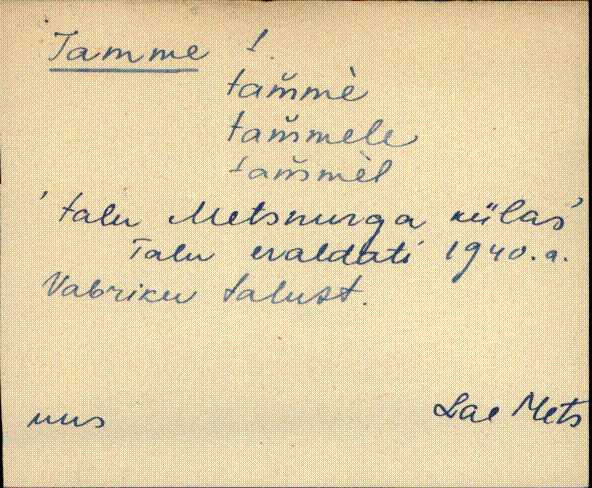 Tamme I.
tam̆mè
tam̆mele
tam̆mèl
'talu Metsnurga külas'
Talu eraldati 1940.a.
Vabriku talust.
uus Lae Mets